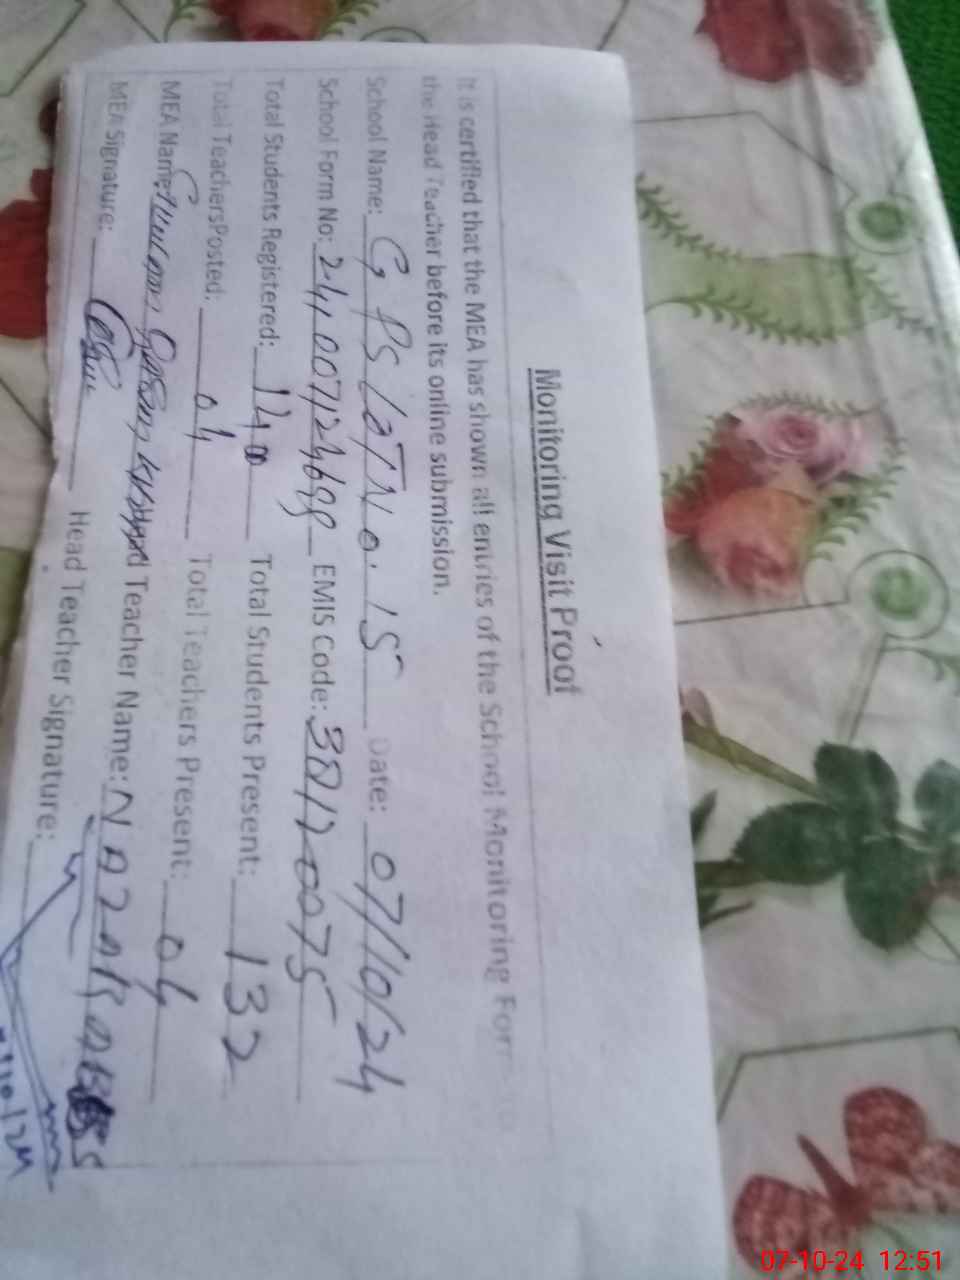 Monitoring Visit Proof
It is certified that the MEA has shown all entries of the School Monitoring Form to
the Head Teacher before its online submission.
School Name: G PS LOT No. 15 Date: 07/10/24
School Form No: EMIS Code:
Total Students Registered: 140 Total Students Present: 132
Total TeachersPosted: 04 Total Teachers Present: 04
MEA Name: Head Teacher Name: NAZAR
MEA Signature: Head Teacher Signature:
/10/24
07-10-24 12:51